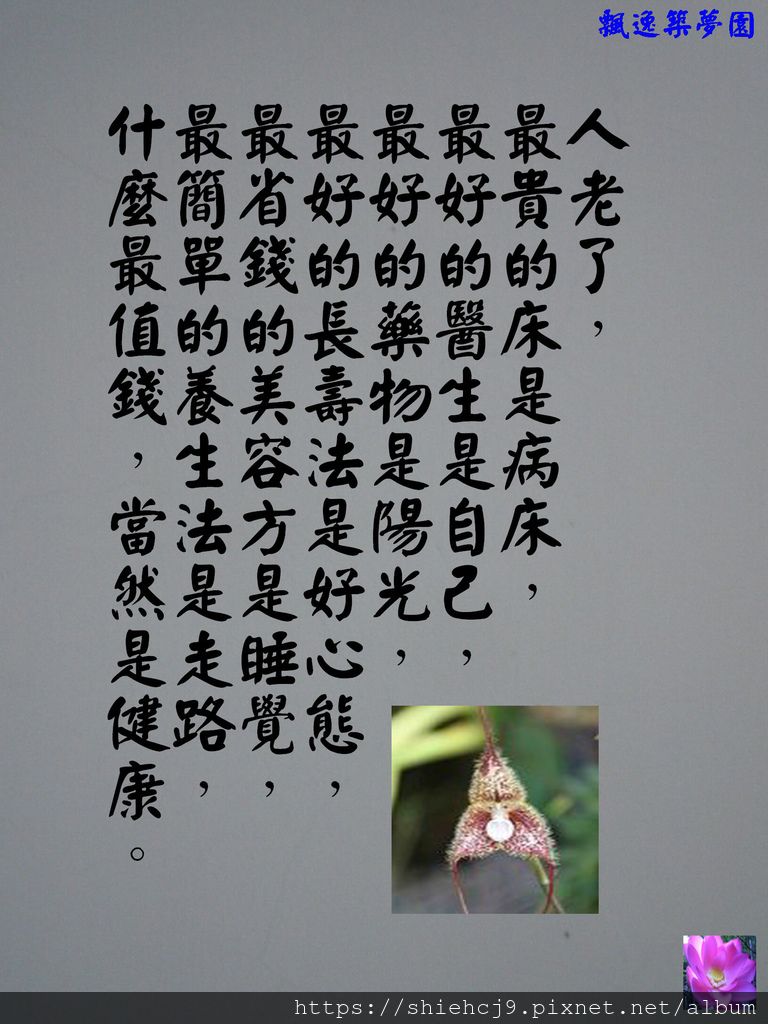 飄逸築夢園
人老了，
最貴的床是病床，
最好的醫生是自己，
最好的藥物是陽光，
最好的長壽法是好心態，
最省錢的美容方是睡覺，
最簡單的養生法是走路，
什麼最值錢，當然是健康。
https://shiehcj9.pixnet.net/album